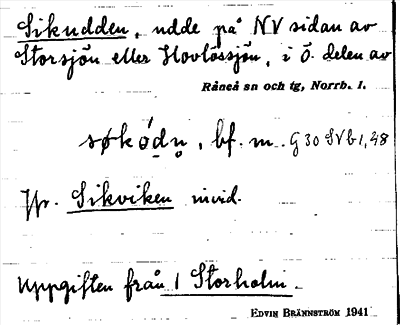 Sikudden, udde på NV sidan av
Storsjön eller Hovlössjön, i ö. delen av
Råneå sn och tg, Norrb. l.
søkódn̥, bf. m. G30 SVb1,48
Jfr. Sikviken invid.
Uppgiften från 1 Storholm.
EDVIN BRÄNNSTRÖM 1941